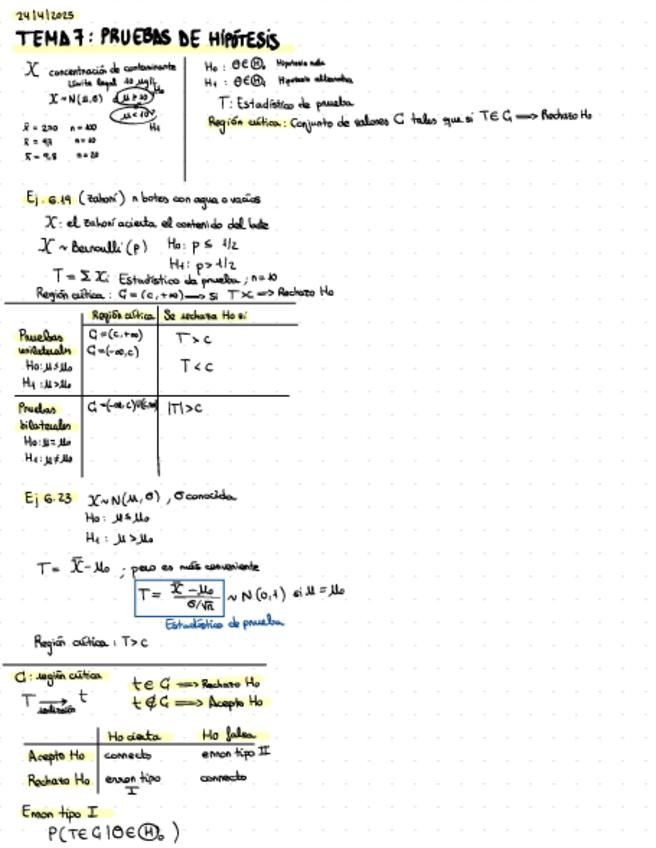 24/4/2025
TEMA 7: PRUEBAS DE HIPÓTESIS
X concentración de contaminante
Límite legal 10 μg/l
X ~ N(μ,σ) μ > 10 H₀
μ < 10 H₁
n = 100
n = 10
x̄ = 9,8 n = 20
H₀ : θ ∈ Ⓗ₀ Hipótesis nula
H₁ : θ ∈ Ⓗ₁ Hipótesis alternativa
T: Estadístico de prueba
Región crítica: Conjunto de valores C tales que si T ∈ C ⟹ Rechazo H₀
Ej. 6.19 (Zahorí) n botes con agua o vacíos
X: el zahorí acierta el contenido del bote
X ~ Bernoulli (p) H₀: p ≤ 1/2
H₁: p > 1/2
T = Σ Xᵢ Estadístico de prueba ; n = 10
Región crítica : C = (c, +∞) ⟶ si T > c ⟹ Rechazo H₀
Región crítica Se rechaza H₀ si
Pruebas unilaterales C = (c, +∞) T > c
C = (-∞, c) T < c
H₀: μ ≤ μ₀
H₁: μ > μ₀
Pruebas bilaterales C = (-∞, c) ∪ |T| > c
H₀: μ = μ₀
H₁: μ ≠ μ₀
Ej 6.23 X ~ N(μ, σ) , σ conocida
H₀ : μ ≤ μ₀
H₁ : μ > μ₀
T = X̄ - μ₀ ; pero es más conveniente
T = (X̄ - μ₀)/(σ/√n) ~ N(0,1) si μ = μ₀
Estadístico de prueba
Región crítica : T > c
C: región crítica
T ⟶ t
realización
t ∈ C ⟹ Rechazo H₀
t ∉ C ⟹ Acepto H₀
H₀ cierta H₀ falsa
Acepto H₀ correcto error tipo II
Rechazo H₀ error tipo I correcto
Error tipo I
P(T ∈ C | θ ∈ Ⓗ₀)